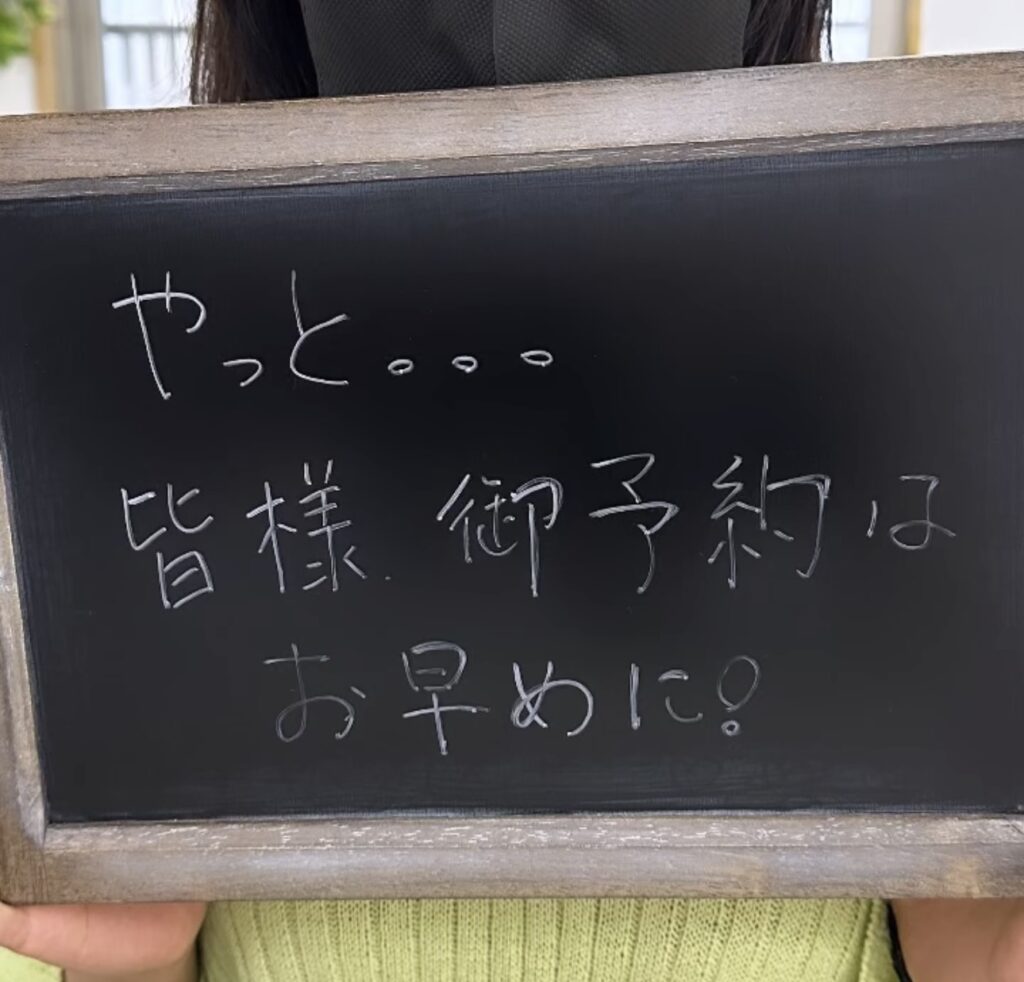 やっと。。。
皆様、御予約は
お早めに!